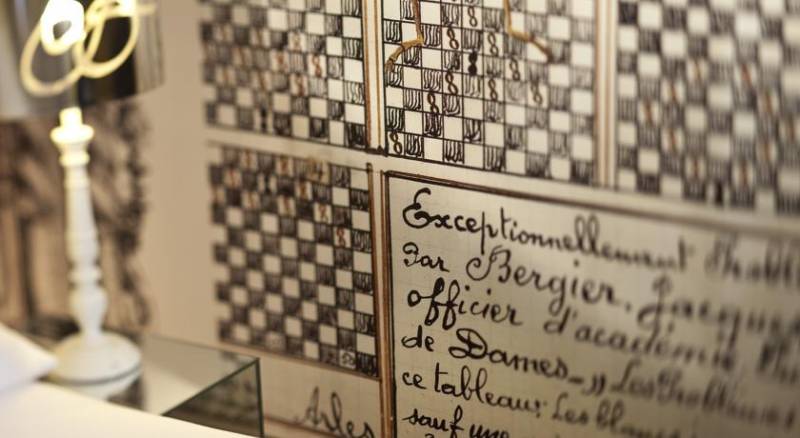 Exceptionnellement
Par Bergier. Jacques
officier d'académie
de Dames_,, Les Problèmes
ce tableau: Les blancs
sauf une
Arles